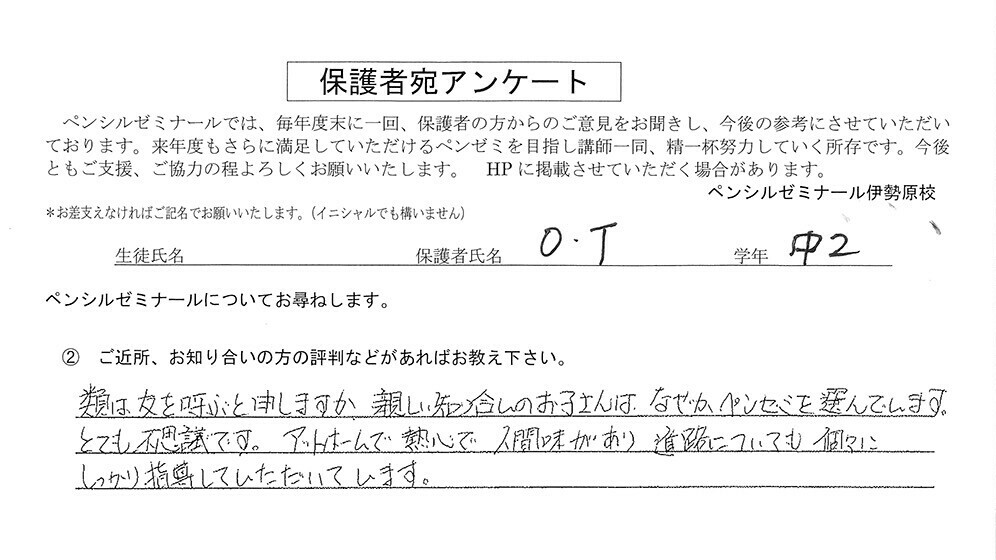 保護者宛アンケート
ペンシルゼミナールでは、毎年度末に一回、保護者の方からのご意見をお聞きし、今後の参考にさせていただい
ております。来年度もさらに満足していただけるペンゼミを目指し講師一同、精一杯努力していく所存です。今後
ともご支援、ご協力の程よろしくお願いいたします。 HPに掲載させていただく場合があります。
ペンシルゼミナール伊勢原校
*お差支えなければご記名でお願いいたします。(イニシャルでも構いません)
生徒氏名 保護者氏名 O・T 学年 中2
ペンシルゼミナールについてお尋ねします。
② ご近所、お知り合いの方の評判などがあればお教え下さい。
類は友を呼ぶと申しますか、親しい知り合いのお子さんは、なぜか、ペンゼミを選んでいます。
とても不思議です。アットホームで熱心で人間味があり進路についても個々に
しっかり指導していただいています。